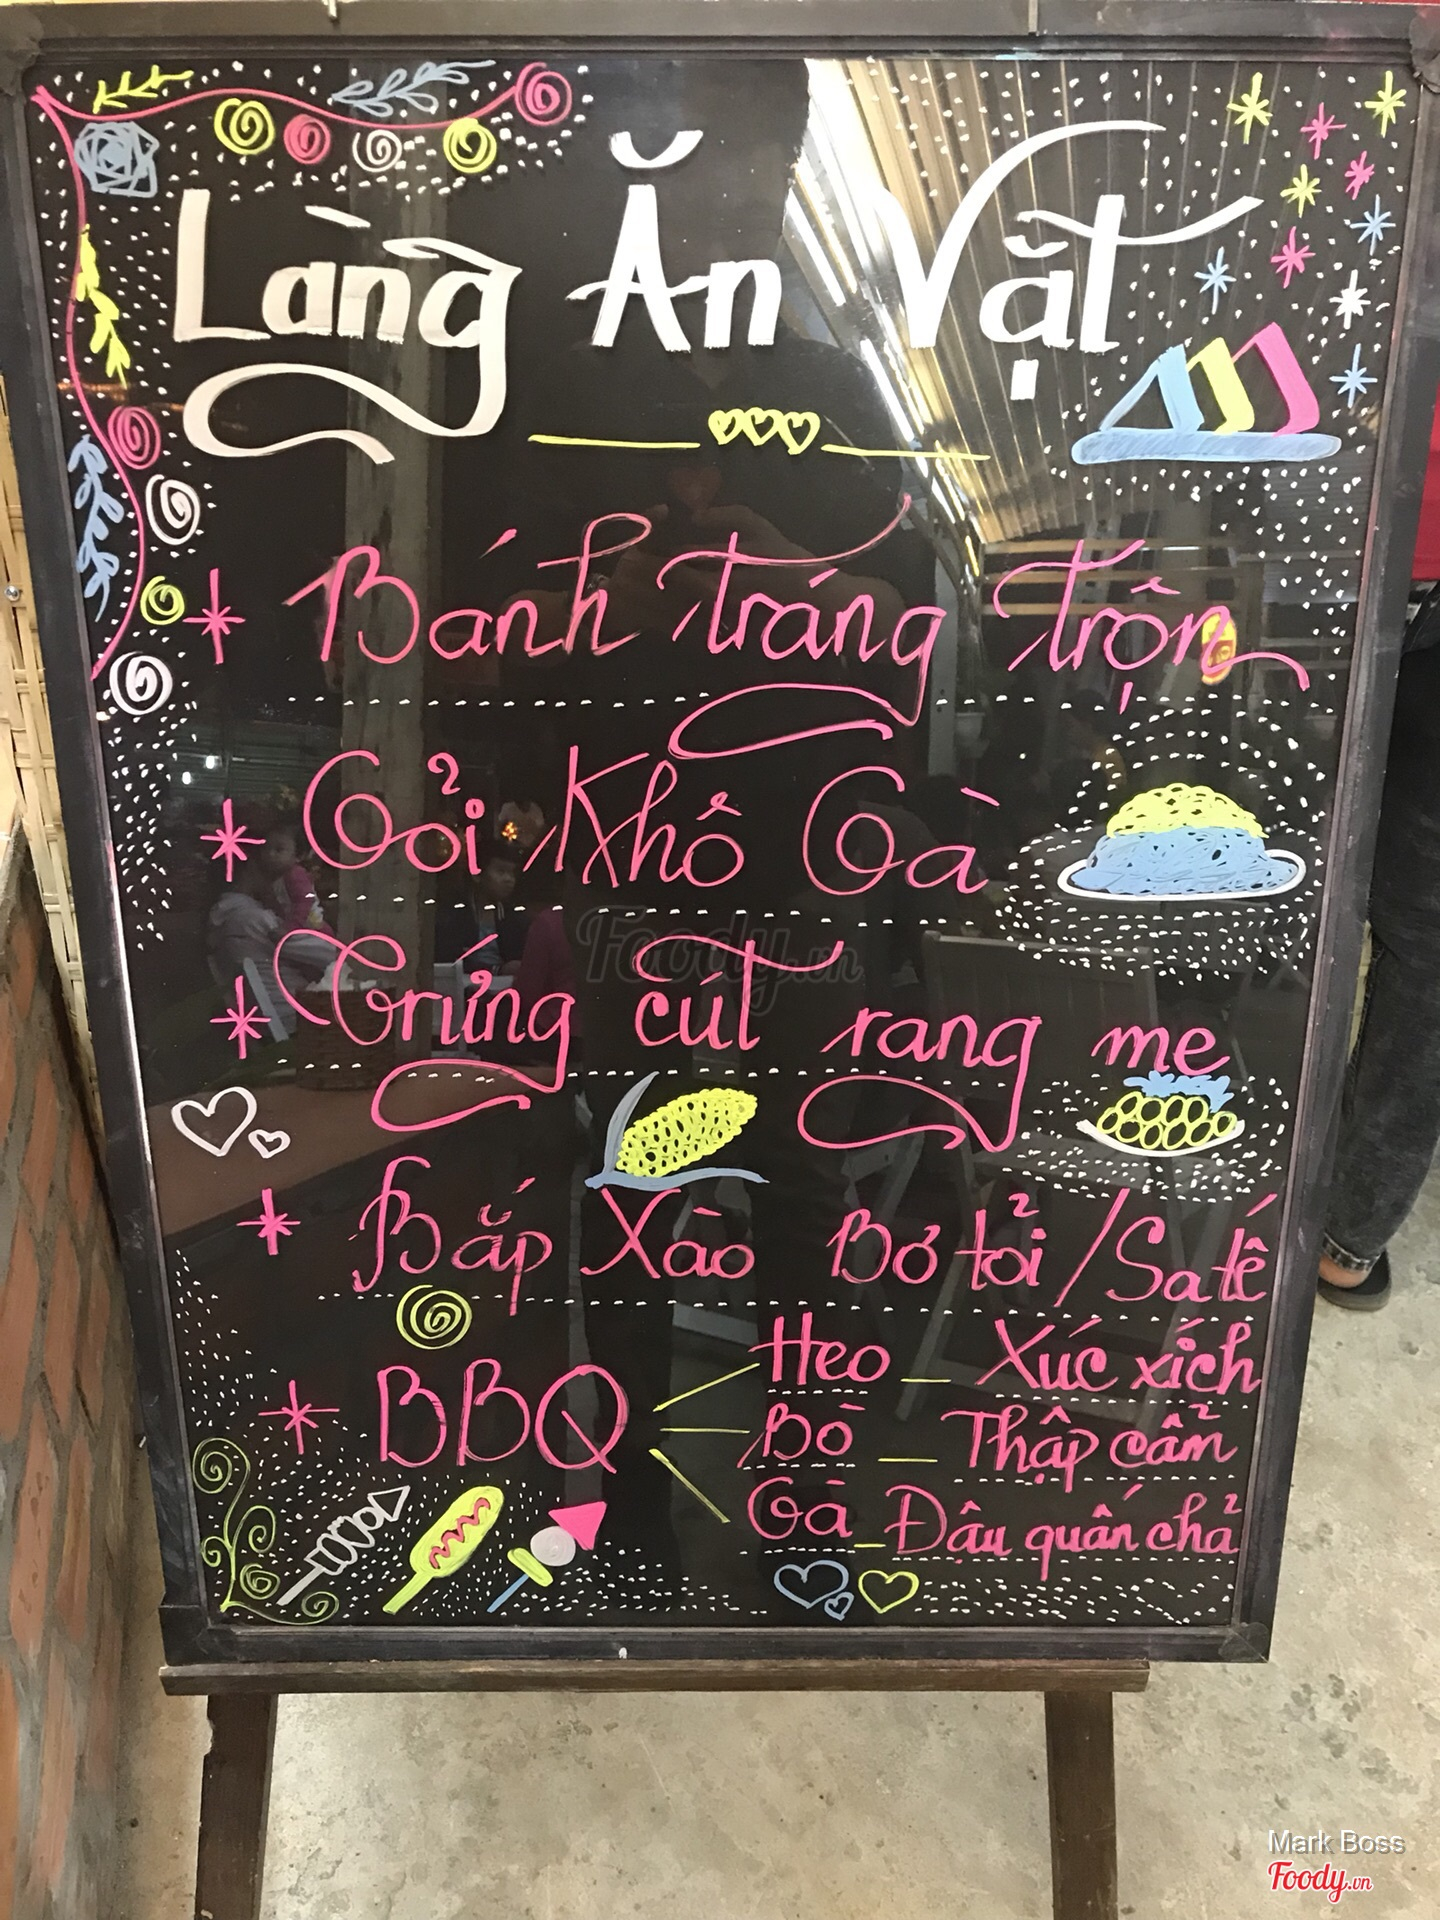 Làng Ăn Vặt
Bánh tráng trộn
Gỏi Khô Gà
Trứng cút rang me
Bắp Xào Bơ tỏi / Sa tế
BBQ
Heo — Xúc xích
Bò — Thập cẩm
Gà — Đậu quấn chả
Foody.vn
Mark Boss
Foody.vn